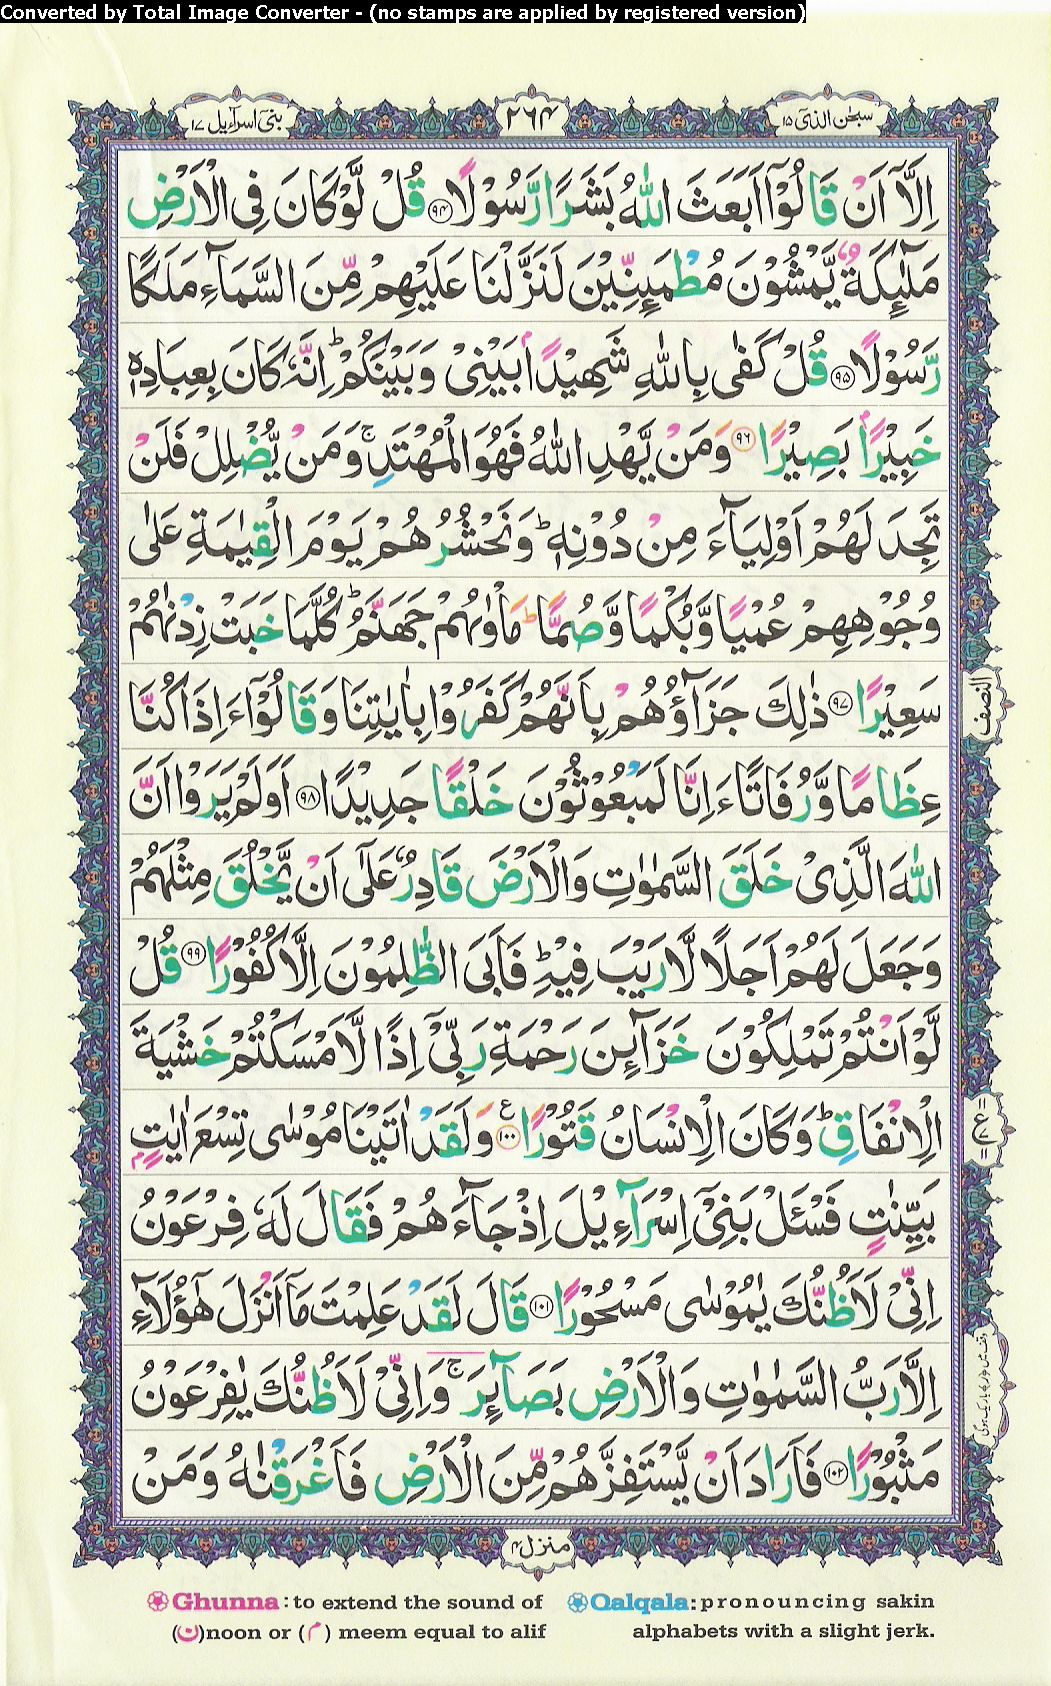 Converted by Total Image Converter - (no stamps are applied by registered version)
سبحٰن الذیٓ ۱۵
۲۶۴
بنیٓ اسرآءیل ۱۷
اِلَّاۤ اَنْ قَالُوْۤا اَبَعَثَ اللّٰهُ بَشَرًا رَّسُوْلًا ﴿۹۴﴾ قُلْ لَّوْ كَانَ فِی الْاَرْضِ
مَلٰٓىِٕكَةٌ یَّمْشُوْنَ مُطْمَىِٕنِّیْنَ لَنَزَّلْنَا عَلَیْهِمْ مِّنَ السَّمَآءِ مَلَكًا
رَّسُوْلًا ﴿۹۵﴾ قُلْ كَفٰی بِاللّٰهِ شَهِیْدًۢا بَیْنِیْ وَ بَیْنَكُمْ ؕ اِنَّهٗ كَانَ بِعِبَادِهٖ
خَبِیْرًۢا بَصِیْرًا ﴿۹۶﴾ وَ مَنْ یَّهْدِ اللّٰهُ فَهُوَ الْمُهْتَدِ ۚ وَ مَنْ یُّضْلِلْ فَلَنْ
تَجِدَ لَهُمْ اَوْلِیَآءَ مِنْ دُوْنِهٖ ؕ وَ نَحْشُرُهُمْ یَوْمَ الْقِیٰمَةِ عَلٰی
وُجُوْهِهِمْ عُمْیًا وَّ بُكْمًا وَّ صُمًّا ؕ مَاْوٰىهُمْ جَهَنَّمُ ؕ كُلَّمَا خَبَتْ زِدْنٰهُمْ
سَعِیْرًا ﴿۹۷﴾ ذٰلِكَ جَزَآؤُهُمْ بِاَنَّهُمْ كَفَرُوْا بِاٰیٰتِنَا وَ قَالُوْۤا ءَاِذَا كُنَّا
عِظَامًا وَّ رُفَاتًا ءَاِنَّا لَمَبْعُوْثُوْنَ خَلْقًا جَدِیْدًا ﴿۹۸﴾ اَوَ لَمْ یَرَوْا اَنَّ
اللّٰهَ الَّذِیْ خَلَقَ السَّمٰوٰتِ وَ الْاَرْضَ قَادِرٌ عَلٰۤی اَنْ یَّخْلُقَ مِثْلَهُمْ
وَ جَعَلَ لَهُمْ اَجَلًا لَّا رَیْبَ فِیْهِ ؕ فَاَبَی الظّٰلِمُوْنَ اِلَّا كُفُوْرًا ﴿۹۹﴾ قُلْ
لَّوْ اَنْتُمْ تَمْلِكُوْنَ خَزَآىِٕنَ رَحْمَةِ رَبِّیْۤ اِذًا لَّاَمْسَكْتُمْ خَشْیَةَ
الْاِنْفَاقِ ؕ وَ كَانَ الْاِنْسَانُ قَتُوْرًا ﴿۱۰۰﴾ ع وَ لَقَدْ اٰتَیْنَا مُوْسٰی تِسْعَ اٰیٰتٍۭ
بَیِّنٰتٍ فَسْـَٔلْ بَنِیْۤ اِسْرَآءِیْلَ اِذْ جَآءَهُمْ فَقَالَ لَهٗ فِرْعَوْنُ
اِنِّیْ لَاَظُنُّكَ یٰمُوْسٰی مَسْحُوْرًا ﴿۱۰۱﴾ قَالَ لَقَدْ عَلِمْتَ مَاۤ اَنْزَلَ هٰۤؤُلَآءِ
اِلَّا رَبُّ السَّمٰوٰتِ وَ الْاَرْضِ بَصَآىِٕرَ ۚ وَ اِنِّیْ لَاَظُنُّكَ یٰفِرْعَوْنُ
مَثْبُوْرًا ﴿۱۰۲﴾ فَاَرَادَ اَنْ یَّسْتَفِزَّهُمْ مِّنَ الْاَرْضِ فَاَغْرَقْنٰهُ وَ مَنْ
النصف
ع
منزل ۴
Ghunna: to extend the sound of
(ن)noon or (م) meem equal to alif
Qalqala: pronouncing sakin
alphabets with a slight jerk.